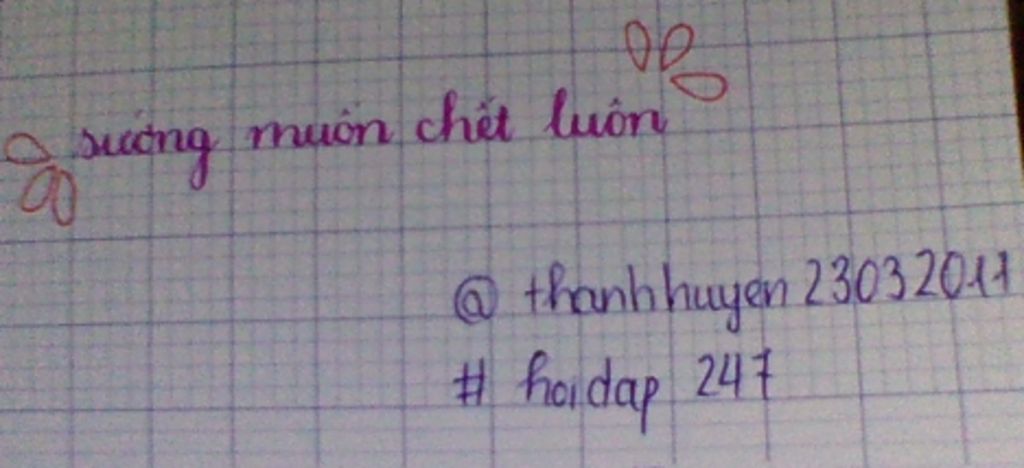 sướng muốn chết luôn
@ thanhhuyen23032011
# hoidap 247